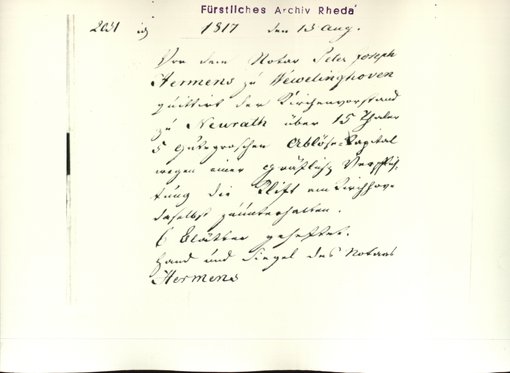 Fürstliches Archiv Rheda
2031 1817 den 13 Aug.
Vor dem Notar Peter Joseph
Hermens zu Wewelinghoven
quittirt der Kirchenvorstand
zu Neurath über 15 Thaler
5 Gutegroschen Ablöse-Capital
wegen einer gräflich Verpflich-
tung die am Kirchhove
daselbst zu unterhalten.
6 Blätter geheftet.
Hand und Siegel des Notars
Hermens